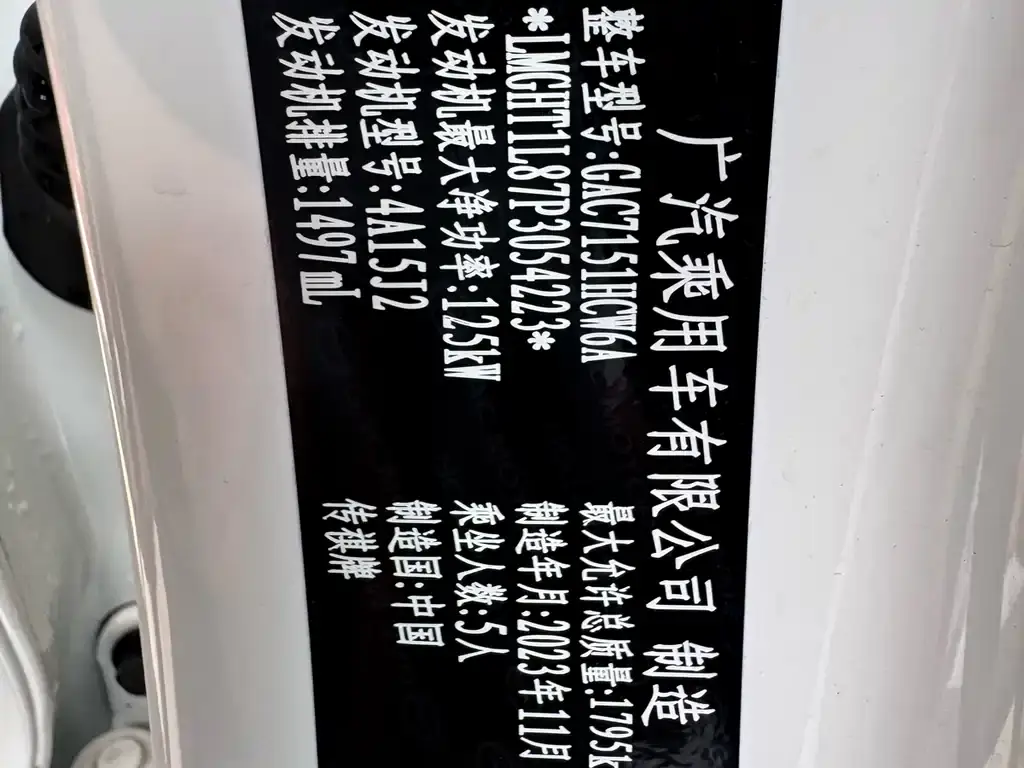 广汽乘用车有限公司 制造
整车型号:GAC7151HCW6A 最大允许总质量:1795k
*LMGHT1L87P3054223* 制造年月:2023年11月
发动机最大净功率:125kW 乘坐人数:5人
发动机型号:4A15J2 制造国:中国
发动机排量:1497mL 传祺牌